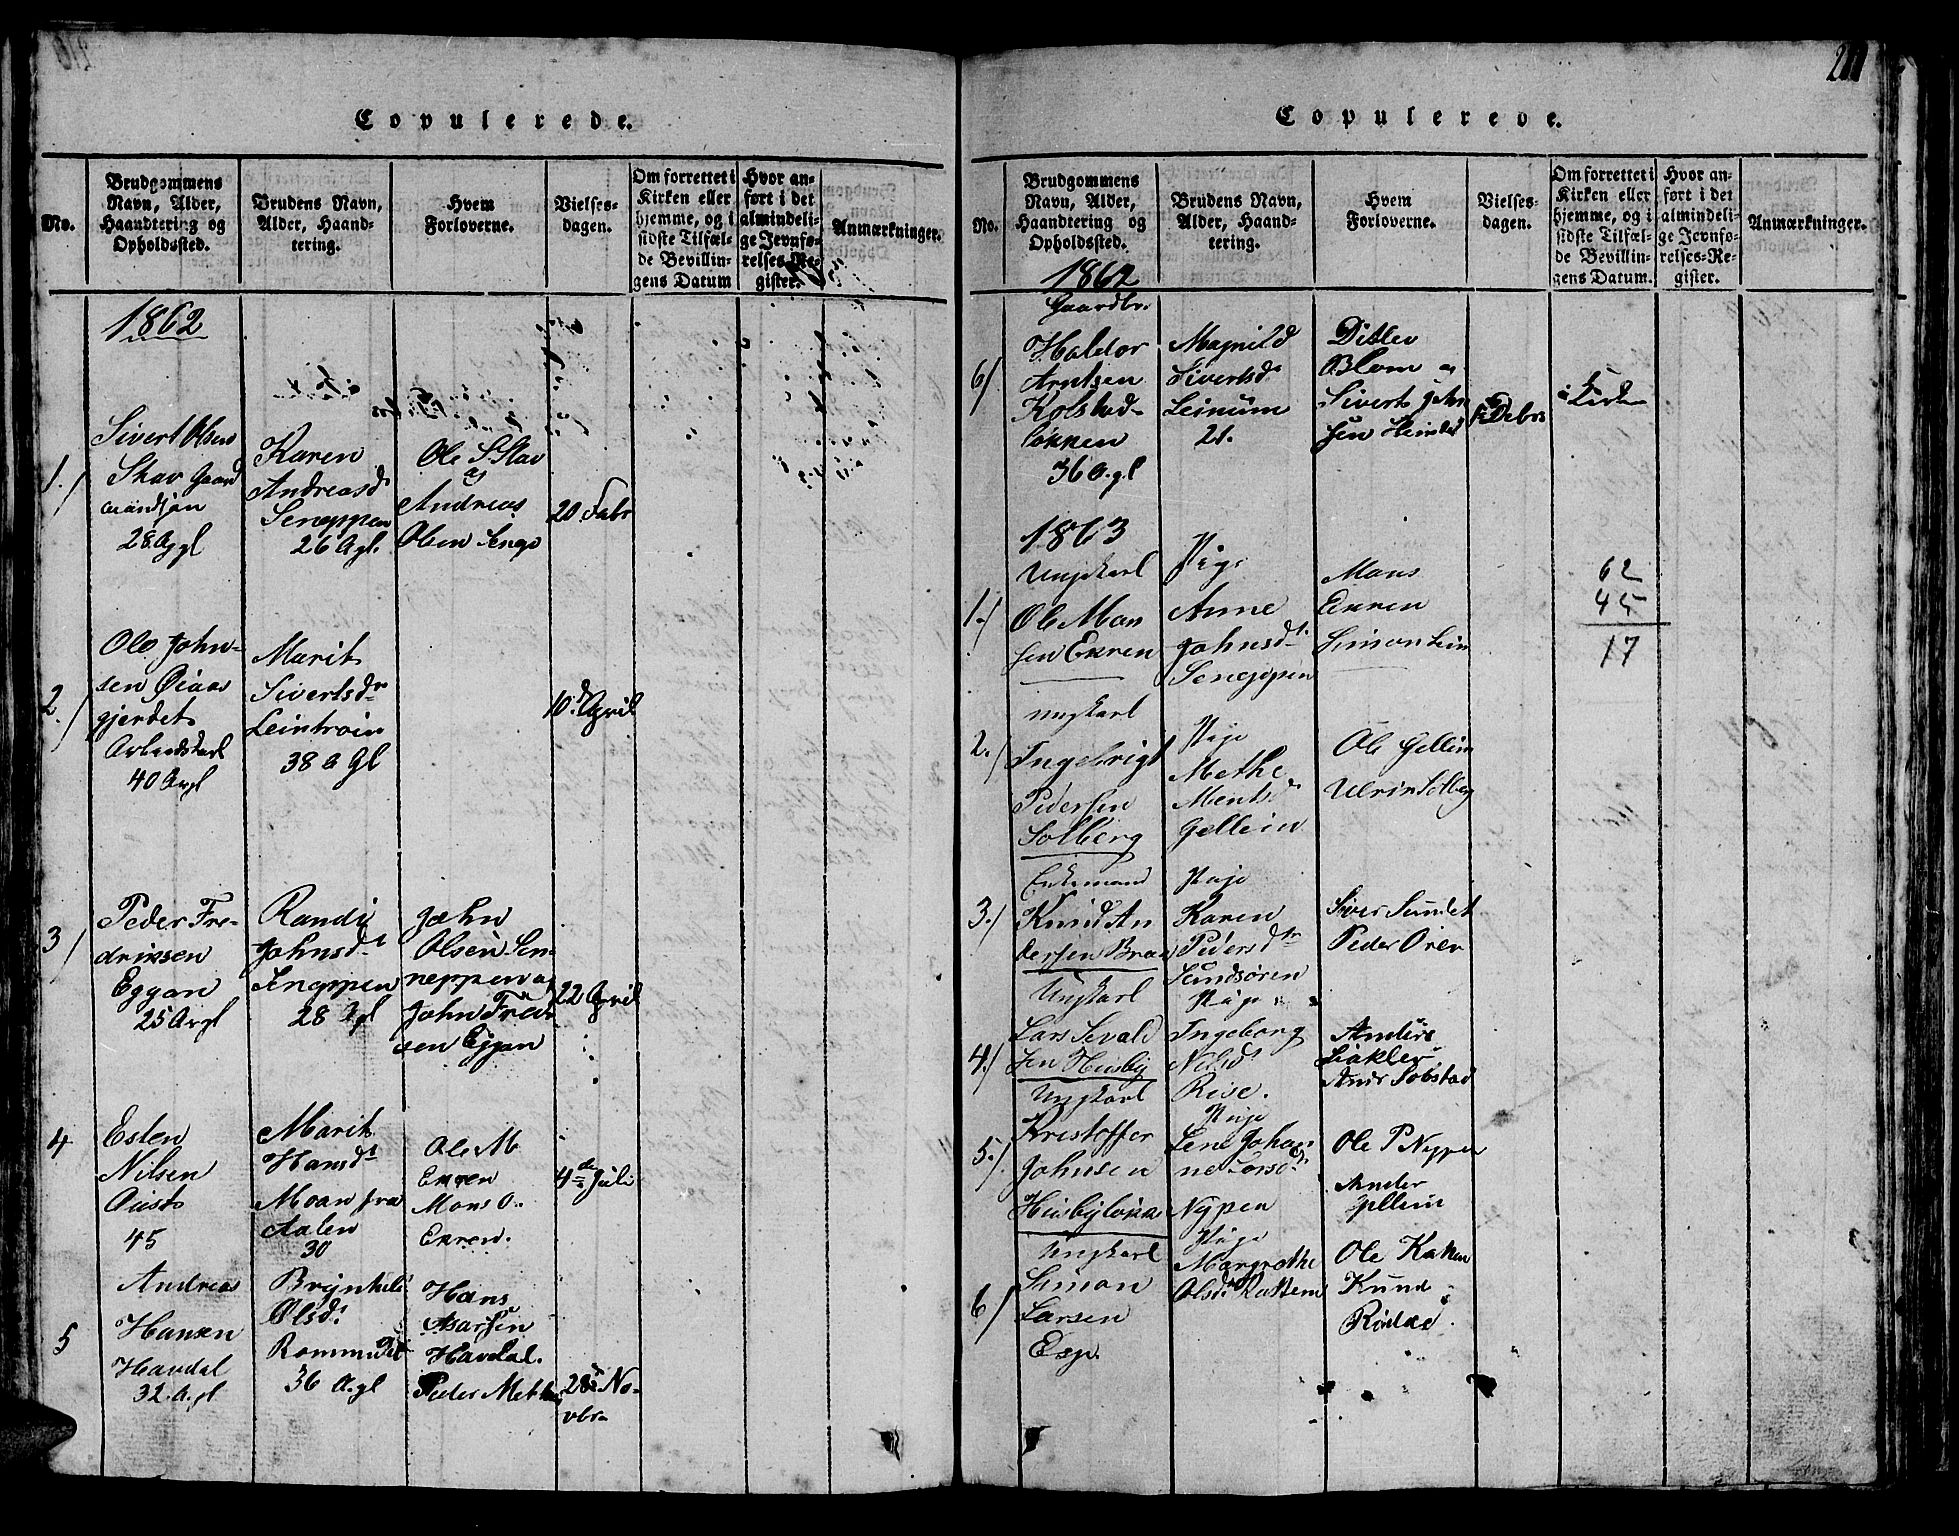 Copulerede.
No.
Brudgommens
Navn, Alder,
Haandtering og
Opholdssted.
Brudens Navn,
Alder, Haand-
tering.
Hvem
Forloverne.
Vielses-
dagen.
Om forrettet i
Kirken eller
hjemme, og i
sidste Tilfæl-
de Bevillin-
gens Datum
Hvor an-
ført i det
almindeli-
ge Jevnfø-
relses-Re-
gister.
Anmærkninger.
1862
1.
Sivert Olsen
Skav Gaard
28 A gl
Karen
Andreasdr
26 A gl.
Ole S Slav
og
Andreas
Olsen
20. Febr
2.
Ole John-
sen Øiaas
gjerdet
Arbeidskarl
40 A gl
Marit
Sivertsdr
Leintroin
38 A gl
10de April
3
Peder Fre-
driksen
Eggan
25 A gl
Randi
Johnsdr
28 A gl
John
Olsen Sen-
neppen og
John Fred
sen Eggan
22 April
4
Esten
Nilsen
45
Marit
Hansdr
Moan fra
Aalen
30
Ole M
Ekren
Mons O.
Ekren.
4de Juli
5
Andreas
Hansen
Havdal
32 A gl
Olsdr
36 A gl
Hans
Havdal.
Peder
28de No-
vbr
211
Copulerede.
No.
Brudgommens
Navn, Alder,
Haandtering og
Opholdssted.
Brudens Navn,
Alder, Haand-
tering.
Hvem
Forloverne.
Vielses-
dagen.
Om forrettet i
Kirken eller
hjemme, og i
sidste Tilfæl-
de Bevillin-
gens Datum.
Hvor an-
ført i det
almindeli-
ge Jevnfø-
relses-Re-
gister.
Anmærkninger.
1862
Gaardbr.
6
Haldor
Arntsen
Kolstad-
løkken
36 A. gl
Magnild
Sivertsdr
Leinum
21.
Ditlev
Blom og
Sivert John
sen
Debr
i Kirken
1863
Ungkarl
1.
Ole Mon
sen Ekren
Pige
Anne
Johnsdr
Mons
Ekren
Simon Lein
62
45
17
Ungkarl
2.
Ingebrigt
Pedersen
Solberg
Pige
Methe
Mentsdr
Gellein
Ole Gellein
Solberg
Enkemand
3.
Knud An
dersen Braa
Pige
Karen
Pedersdtr
Sundsøren
Siver Sundet
Peder Ører
Ungkarl
4.
Lars Sevald
sen Huseby
Pige
Ingeborg
Nilsdr
Rise.
Anders
Andr Sobstad
Ungkarl
5.
Kristoffer
Johnsen
Pige
Lene Johan
ne Larsdr
Nypen
Ole P Nypen
Ander
Gellein
Ungkarl
6
Simon
Larsen
Esp.
Pige
Margrethe
Olsdr Kattem
Ole Kattem
Knud